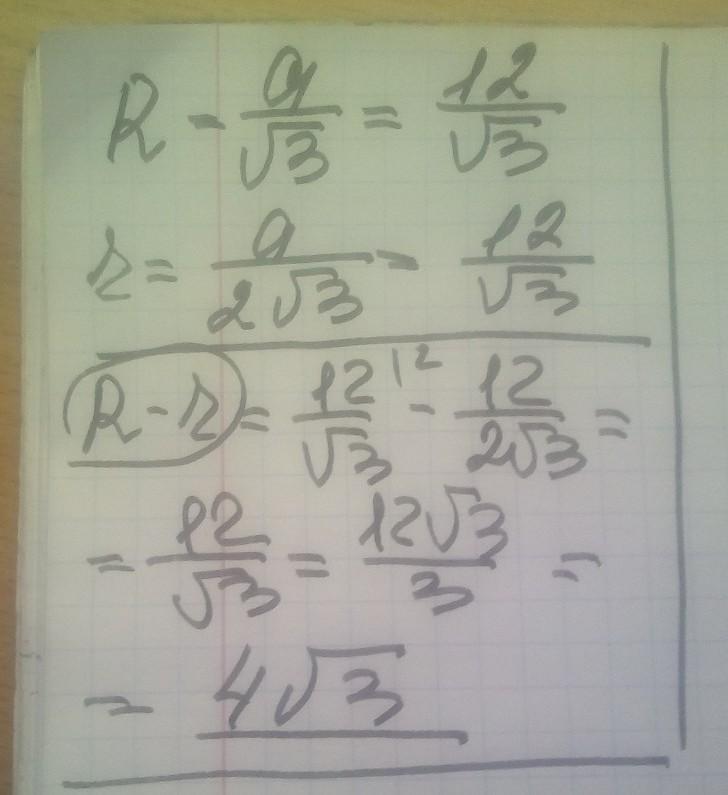 R = a/√3 = 12/√3
r = a/2√3 = 12/√3
R - r = 12/√3 |² - 12/2√3 =
= 12/√3 = 12√3/3 =
= 4√3